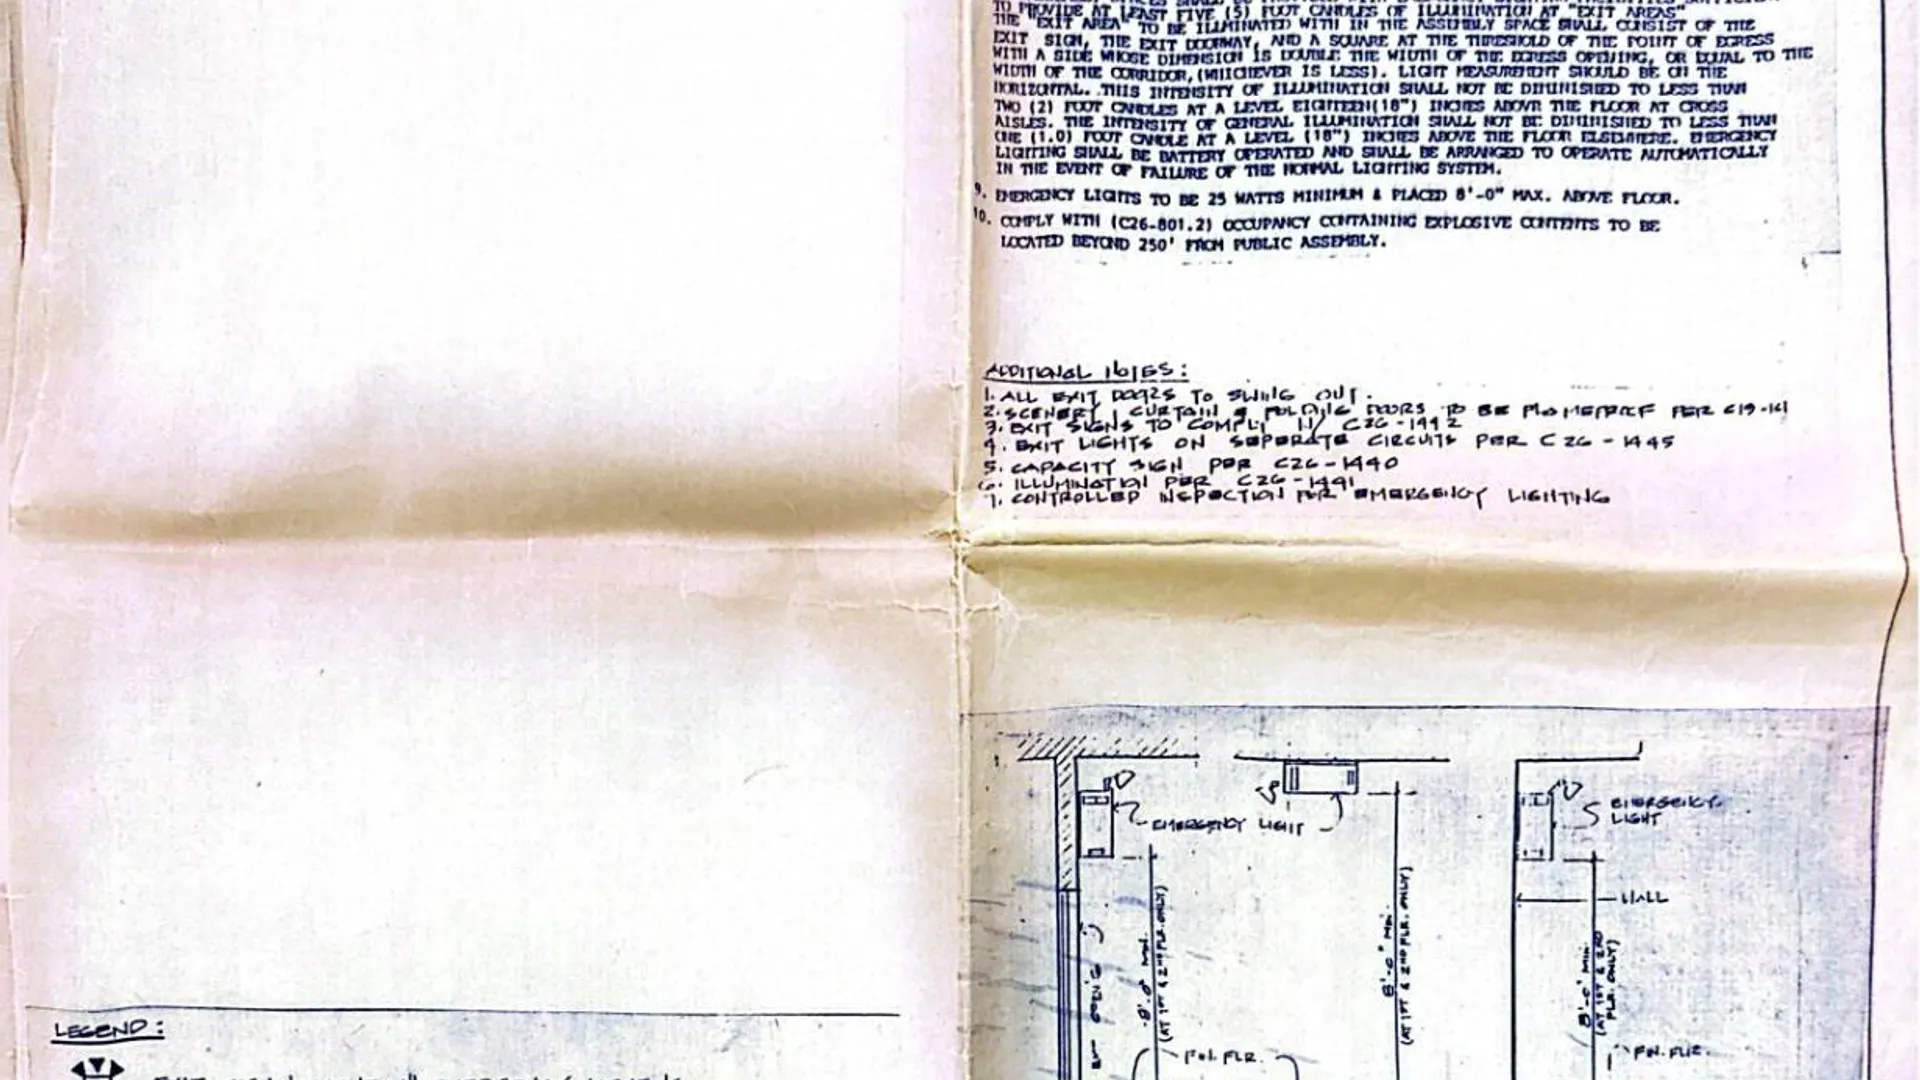 TO PROVIDE AT LEAST FIVE (5) FOOT CANDLES OF ILLUMINATION AT "EXIT AREAS"
THE "EXIT AREA" TO BE ILLUMINATED WITH IN THE ASSEMBLY SPACE SHALL CONSIST OF THE
EXIT SIGN, THE EXIT DOORWAY, AND A SQUARE AT THE THRESHOLD OF THE POINT OF EGRESS
WITH A SIDE WHOSE DIMENSION IS DOUBLE THE WIDTH OF THE EGRESS OPENING, OR EQUAL TO THE
WIDTH OF THE CORRIDOR, (WHICHEVER IS LESS). LIGHT MEASUREMENT SHOULD BE ON THE
HORIZONTAL. THIS INTENSITY OF ILLUMINATION SHALL NOT BE DIMINISHED TO LESS THAN
TWO (2) FOOT CANDLES AT A LEVEL EIGHTEEN(18") INCHES ABOVE THE FLOOR AT CROSS
AISLES. THE INTENSITY OF GENERAL ILLUMINATION SHALL NOT BE DIMINISHED TO LESS THAN
ONE (1.0) FOOT CANDLE AT A LEVEL (18") INCHES ABOVE THE FLOOR ELSEWHERE. EMERGENCY
LIGHTING SHALL BE BATTERY OPERATED AND SHALL BE ARRANGED TO OPERATE AUTOMATICALLY
IN THE EVENT OF FAILURE OF THE NORMAL LIGHTING SYSTEM.
9. EMERGENCY LIGHTS TO BE 25 WATTS MINIMUM & PLACED 8'-0" MAX. ABOVE FLOOR.
10. COMPLY WITH (C26-801.2) OCCUPANCY CONTAINING EXPLOSIVE CONTENTS TO BE
LOCATED BEYOND 250' FROM PUBLIC ASSEMBLY.
ADDITIONAL NOTES:
1. ALL EXIT DOORS TO SWING OUT.
2. SCENERY, CURTAIN & FOLDING DOORS TO BE FLAMEPROOF PER C19-161
3. EXIT SIGNS TO COMPLY W/ C26-1442
4. EXIT LIGHTS ON SEPERATE CIRCUITS PER C26-1445
5. CAPACITY SIGN PER C26-1440
6. ILLUMINATION PER C26-1441
7. CONTROLLED INSPECTION FOR EMERGENCY LIGHTING
EMERGENCY LIGHT
EMERGENCY
LIGHT
WALL
8'-0" MIN.
(AT 1ST & 2ND FLR. ONLY)
8'-0" MIN.
(AT 1ST & 2ND FLR. ONLY)
8'-0" MIN.
(AT 1ST & 2ND
FLR. ONLY)
FIN. FLR.
FIN. FLR.
LEGEND: